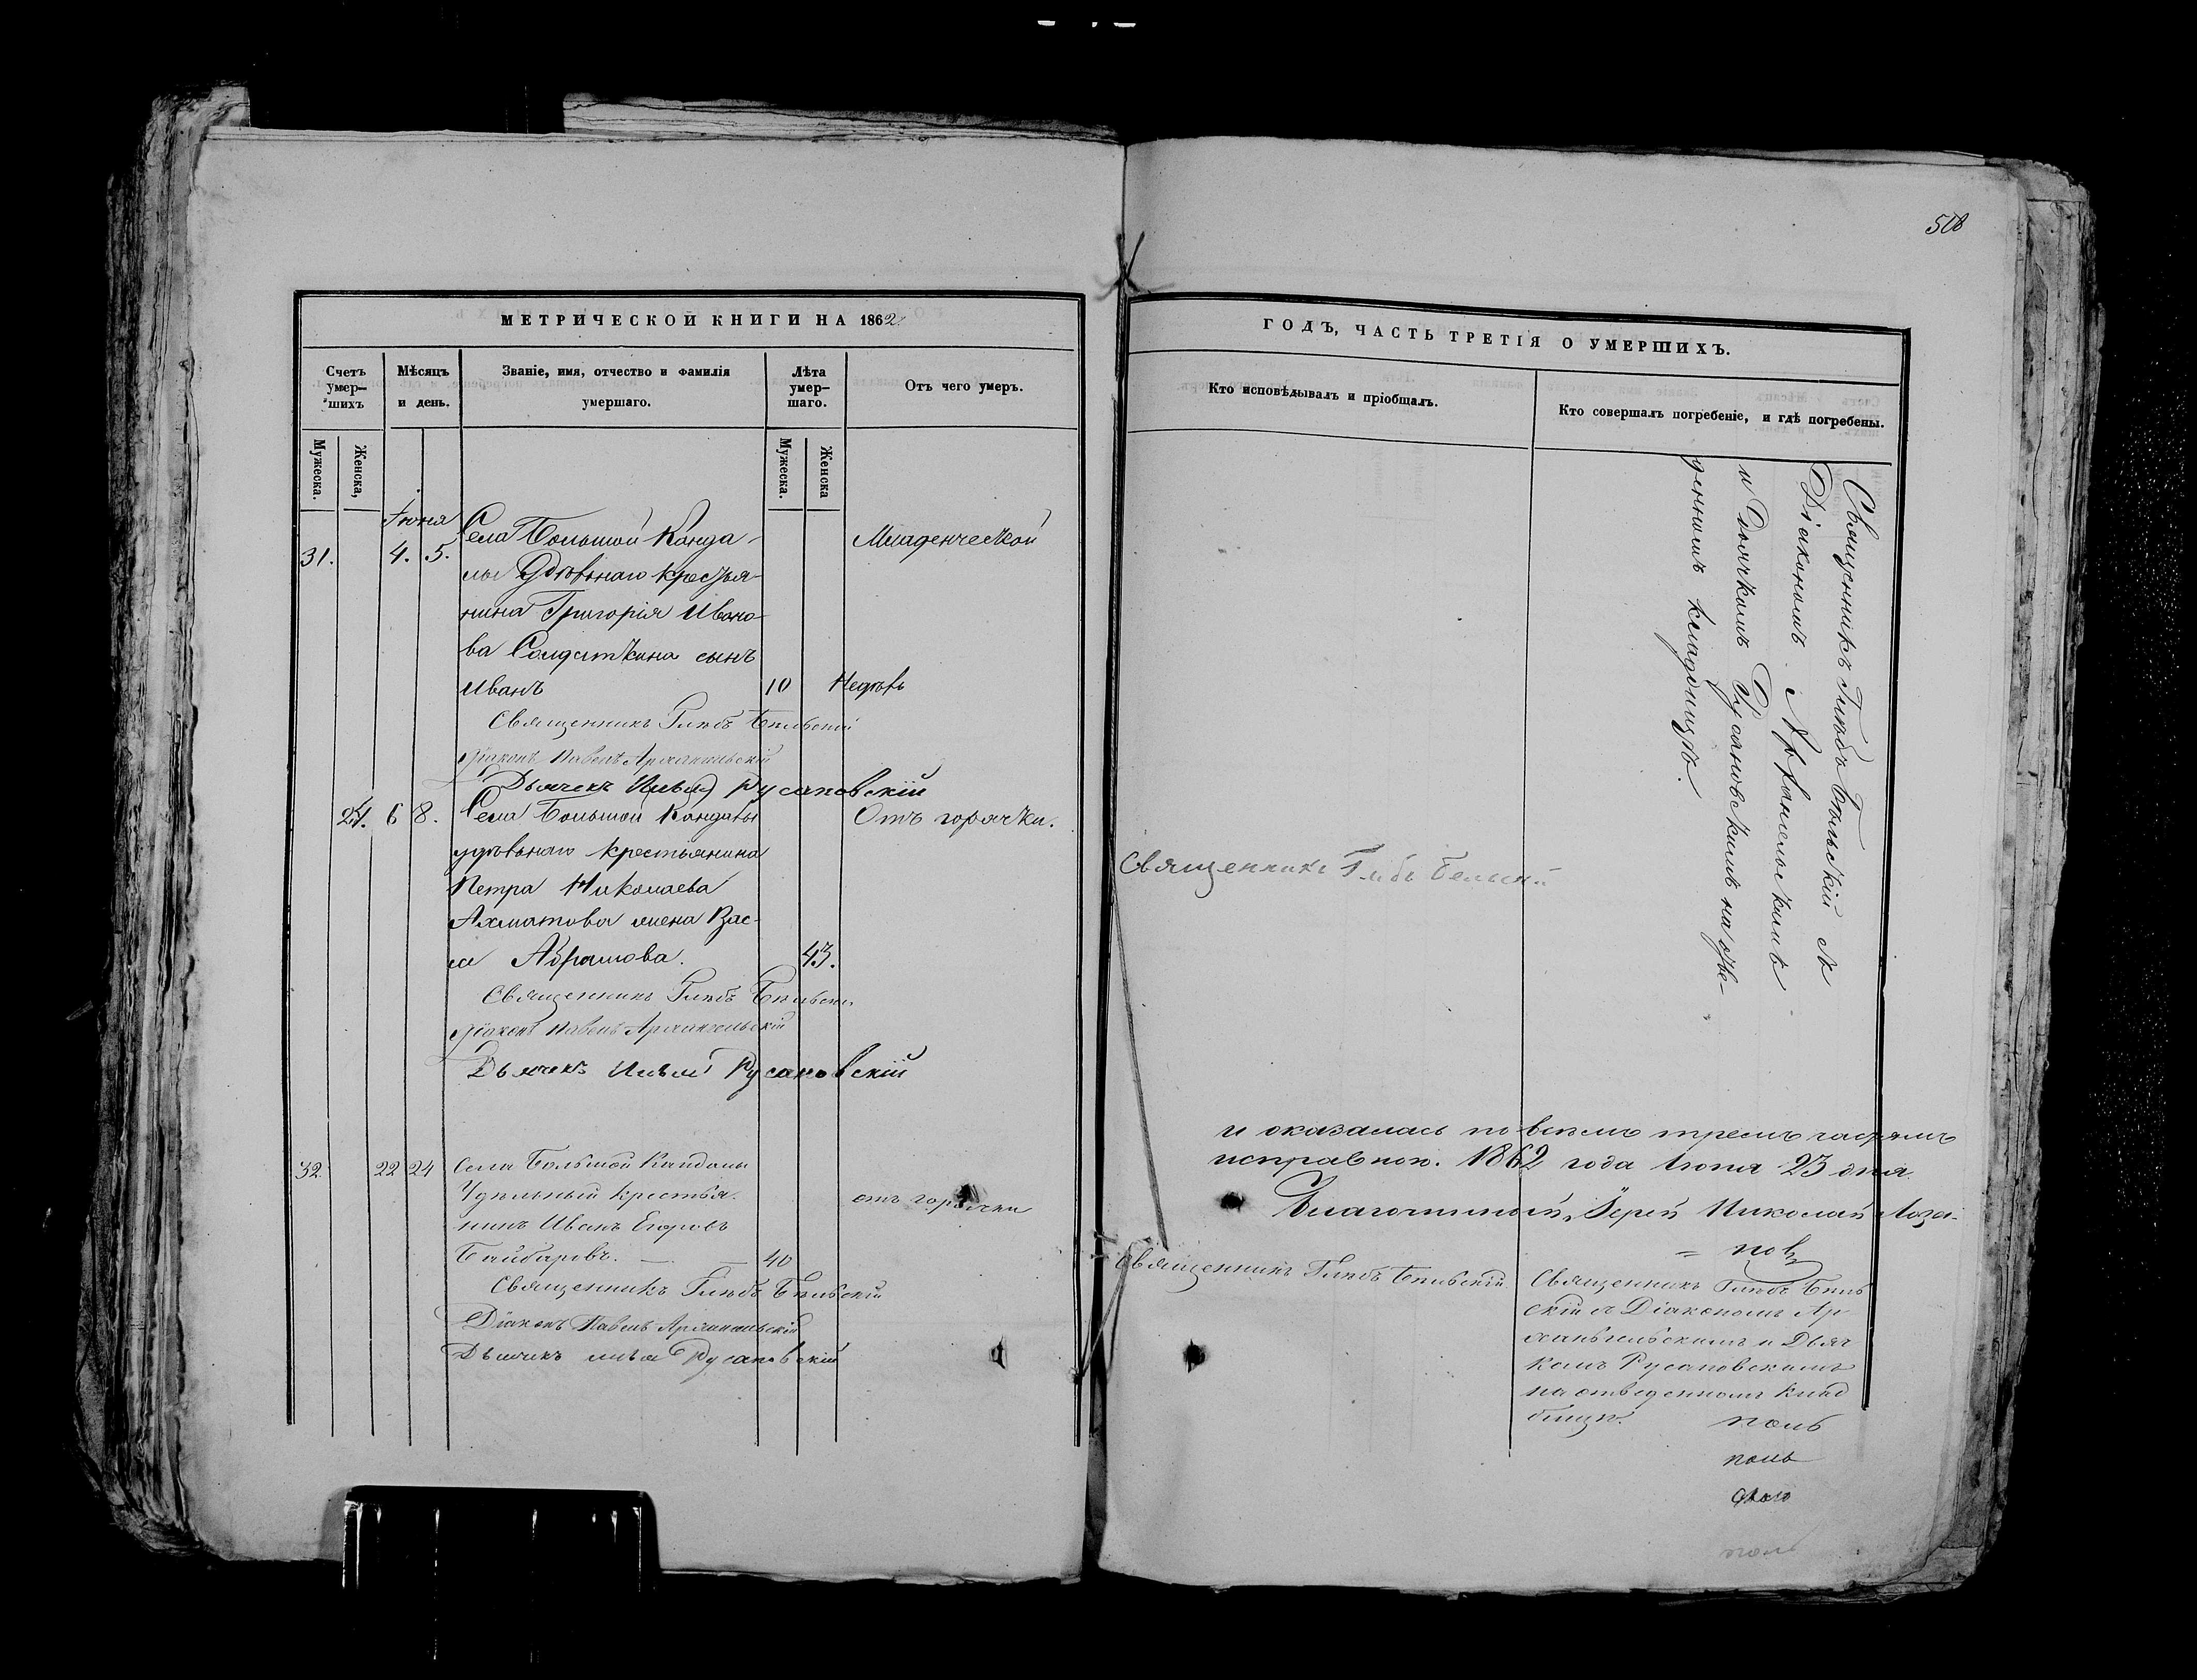 508
МЕТРИЧЕСКОЙ КНИГИ НА 1862
Счетъ умер-шихъ
Мѣсяцъ и день.
Званіе, имя, отчество и фамилія умершаго.
Лѣта умер-шаго.
Отъ чего умеръ.
Мужеска.
Женска,
Мужеска.
Женска
Іюня
31.
4. 5.
Села Большой Канда-
лы Удѣльнаго крестья-
нина Григорія Ивано-
ва Солдаткина сынъ
Иванъ
10
Недѣль
Младенческой
Священникъ Глѣбъ Бѣльскій
Діаконъ Павелъ Архангельскій
Дьячекъ Илья Русановскій
24. 6 8.
Села Большой Кандалы
удѣльнаго крестьянина
Петра Николаева
Ахматова жена Вас-
са Абрамова.
43.
Отъ горячки.
Священникъ Глѣбъ Бѣльскій
Діаконъ Павелъ Архангельскій
Дьячекъ Илья Русановскій
32
22 24
Села Большой Кандалы
Удѣльный крестья-
нинъ Иванъ Егоровъ
Байбаровъ.
40
отъ горячки
Священникъ Глѣбъ Бѣльскій
Діаконъ Павелъ Архангельскій
Дьячекъ Илья Русановскій
ГОДЪ, ЧАСТЬ ТРЕТІЯ О УМЕРШИХЪ.
Кто исповѣдывалъ и пріобщалъ.
Кто совершалъ погребеніе, и гдѣ погребены.
Священникъ Глѣбъ Бѣльскій съ
Діакономъ Архангельскимъ
и Дьячкомъ Русановскимъ на отве-
денномъ кладбищѣ.
Священникъ Глѣбъ Бельскій
и оказалась по всѣмъ тремъ частямъ
исправною. 1862 года Іюня 23 дня.
Благочинный, Іерей Николай Лоза-
= новъ
Священникъ Глѣбъ Бѣльскій
Священникъ Глѣбъ Бѣль
скій съ Діакономъ Ар
хангельскимъ и Дьяч
комъ Русановскимъ
на отведенномъ клад
бищѣ.